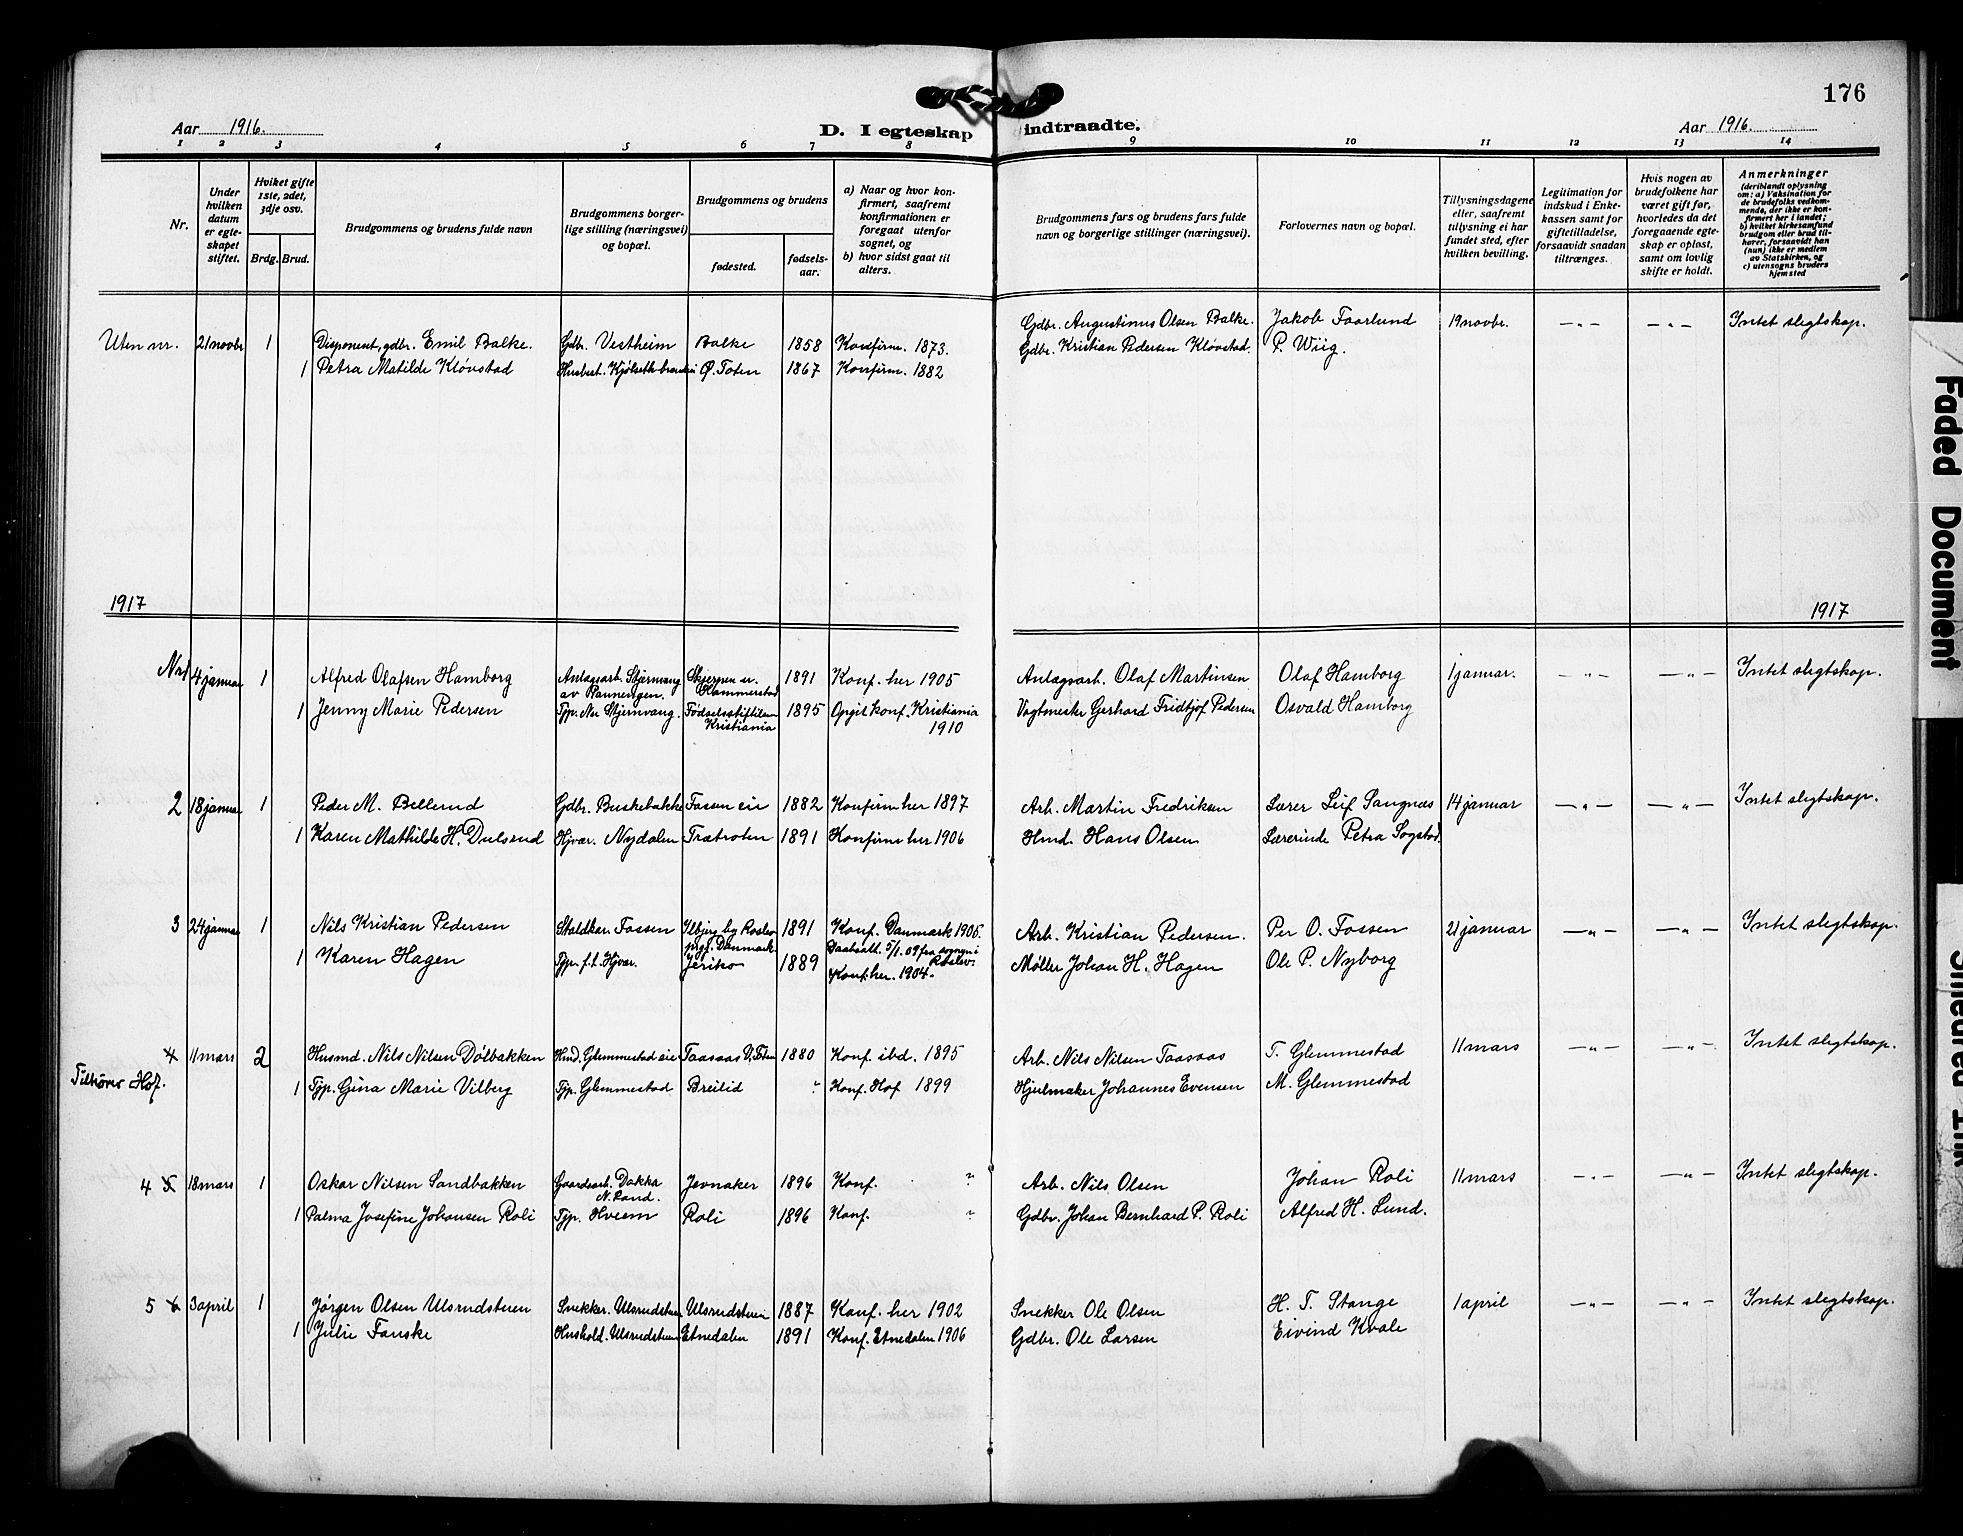 176
Aar 1916.
D. I egteskap indtraadte.
Aar 1916.
1 2 3 4 5 6 7 8 9 10 11 12 13 14
Nr.
Under hvilken datum er egteskapet stiftet.
Hviket gifte 1ste, 2det, 3dje osv.
Brdg. Brud.
Brudgommens og brudens fulde navn
Brudgommens borgerlige stilling (næringsvei) og bopæl.
Brudgommens og brudens
fødested.
fødselsaar.
a) Naar og hvor konfirmert, saafremt konfirmationen er foregaat utenfor sognet, og
b) hvor sidst gaat til alters.
Brudgommens fars og brudens fars fulde navn og borgerlige stillinger (næringsvei).
Forlovernes navn og bopæl.
Tillysningsdagene eller, saafremt tillysning ei har fundet sted, efter hvilken bevilling.
Legitimation for indskud i Enkekassen samt for giftetilladelse, forsaavidt saadan tiltrænges.
Hvis nogen av brudefolkene har været gift før, hvorledes da det foregaaende egteskap er opløst, samt om lovlig skifte er holdt.
Anmerkninger
(deriblandt oplysning om: a) Vaksination for de brudefolks vedkommende, der ikke er konfirmert her i landet; b) hvilket kirkesamfund brudgom eller brud tilhører, forsaavidt han (hun) ikke er medlem av Statskirken, og c) utensogns bruders hjemsted
Uten nr. 21 novbr 1 Disponent, gdbr. Emil Balke. Gdb. Vestheim Balke 1858 Konfirm. 1873. Gdbr. Augustinus Olsen Balke. Jakob Faarlund 19 novbr. —„— —„— Intet slegtskap.
1 Petra Matilde Kløvstad Husbest. Kjølseth Ø. Toten 1867 Konfirm. 1882 Gdbr. Kristian Pedersen Kløvstad. P. Wiig.
1917
1917
Nr 1 4 januar 1 Alfred Olafsen Hamborg Anlagsarb. Stjernvang Skjerpen 1891 Konf. her 1905 Anlagsarb. Olaf Martinsen Olaf Hamborg 1 januar. —„— —„— Intet slegtskap.
Hammerstad
1 Jenny Marie Pedersen Tjp. Stjernvang. Fødselsstiftelsen Kristiania 1895 Opgit konf. Kristiania 1910 Vagtmester Gerhard Fridtjof Pedersen Osvald Hamborg
2 18 januar 1 Peder M. Bellerud Gdbr. Buskebakke Fossen eie 1882 Konfirm her 1897 Arb. Martin Fredriksen Lærer Leif Sangnæs 14 januar —„— —„— Intet slegtskap.
1 Karen Mathilde H. Dulsrud Hjvær. Nydalen Trætroten 1891 Konfirm her 1906 Hmd. Hans Olsen Lærerinde Petra Sogstad.
3 24 januar 1 Nils Kristian Pedersen Staldkar. Fossen Danmark 1891 Konf. Danmark 1905. Arb. Kristian Pedersen. Per O. Fossen 21 januar —„— —„— Intet slegtskap.
1 Karen Hagen Tjp. f.t. Hjvær. Jeriko 1889 Konf. her. 1904. Møller Johan H. Hagen Ole P. Nyborg
4 11 mars 2 Husmd. Nils Nilsen Dølbakken Hmd. Glemmestad eie Taasaas V. Toten 1880 Konf. ibd. 1895 Arb. Nils Nilsen Taasaas T. Glemmestad 11 mars —„— —„— Intet slegtskap.
Tilhører Hof. 1 Tjp. Gina Marie Vilberg Tjp. Glemmestad Breilid " Konf. Hof 1899 Hjulmaker Johannes Evensen M. Glemmestad
4 5 18 mars 1 Oskar Nilsen Sandbakken Gaardsarb. Dokka N. Land. Jevnaker 1896 Konf. ? Arb. Nils Olsen Johan Roli 11 mars —„— —„— Intet slegtskap.
1 Palma Josefine Johansen Roli Tjp. Hveem Roli 1896 Konf. ? Gdbr. Johan Bernhard P. Roli Alfred H. Lund.
5 6 3 april 1 Jørgen Olsen Ulsrudstuen Snekker. Ulsrudstuen Ulsrudstuen 1887 Konf. her 1902 Snekker Ole Olsen H. T. Stange 1 april —„— —„— Intet slegtskap.
1 Julie Fanske Hushold. Ulsrudstuen Etnedalen 1891 Konf. Etnedalen 1906 Gdbr. Ole Larsen Eivind Kvale
Faded Document
Smeared Ink